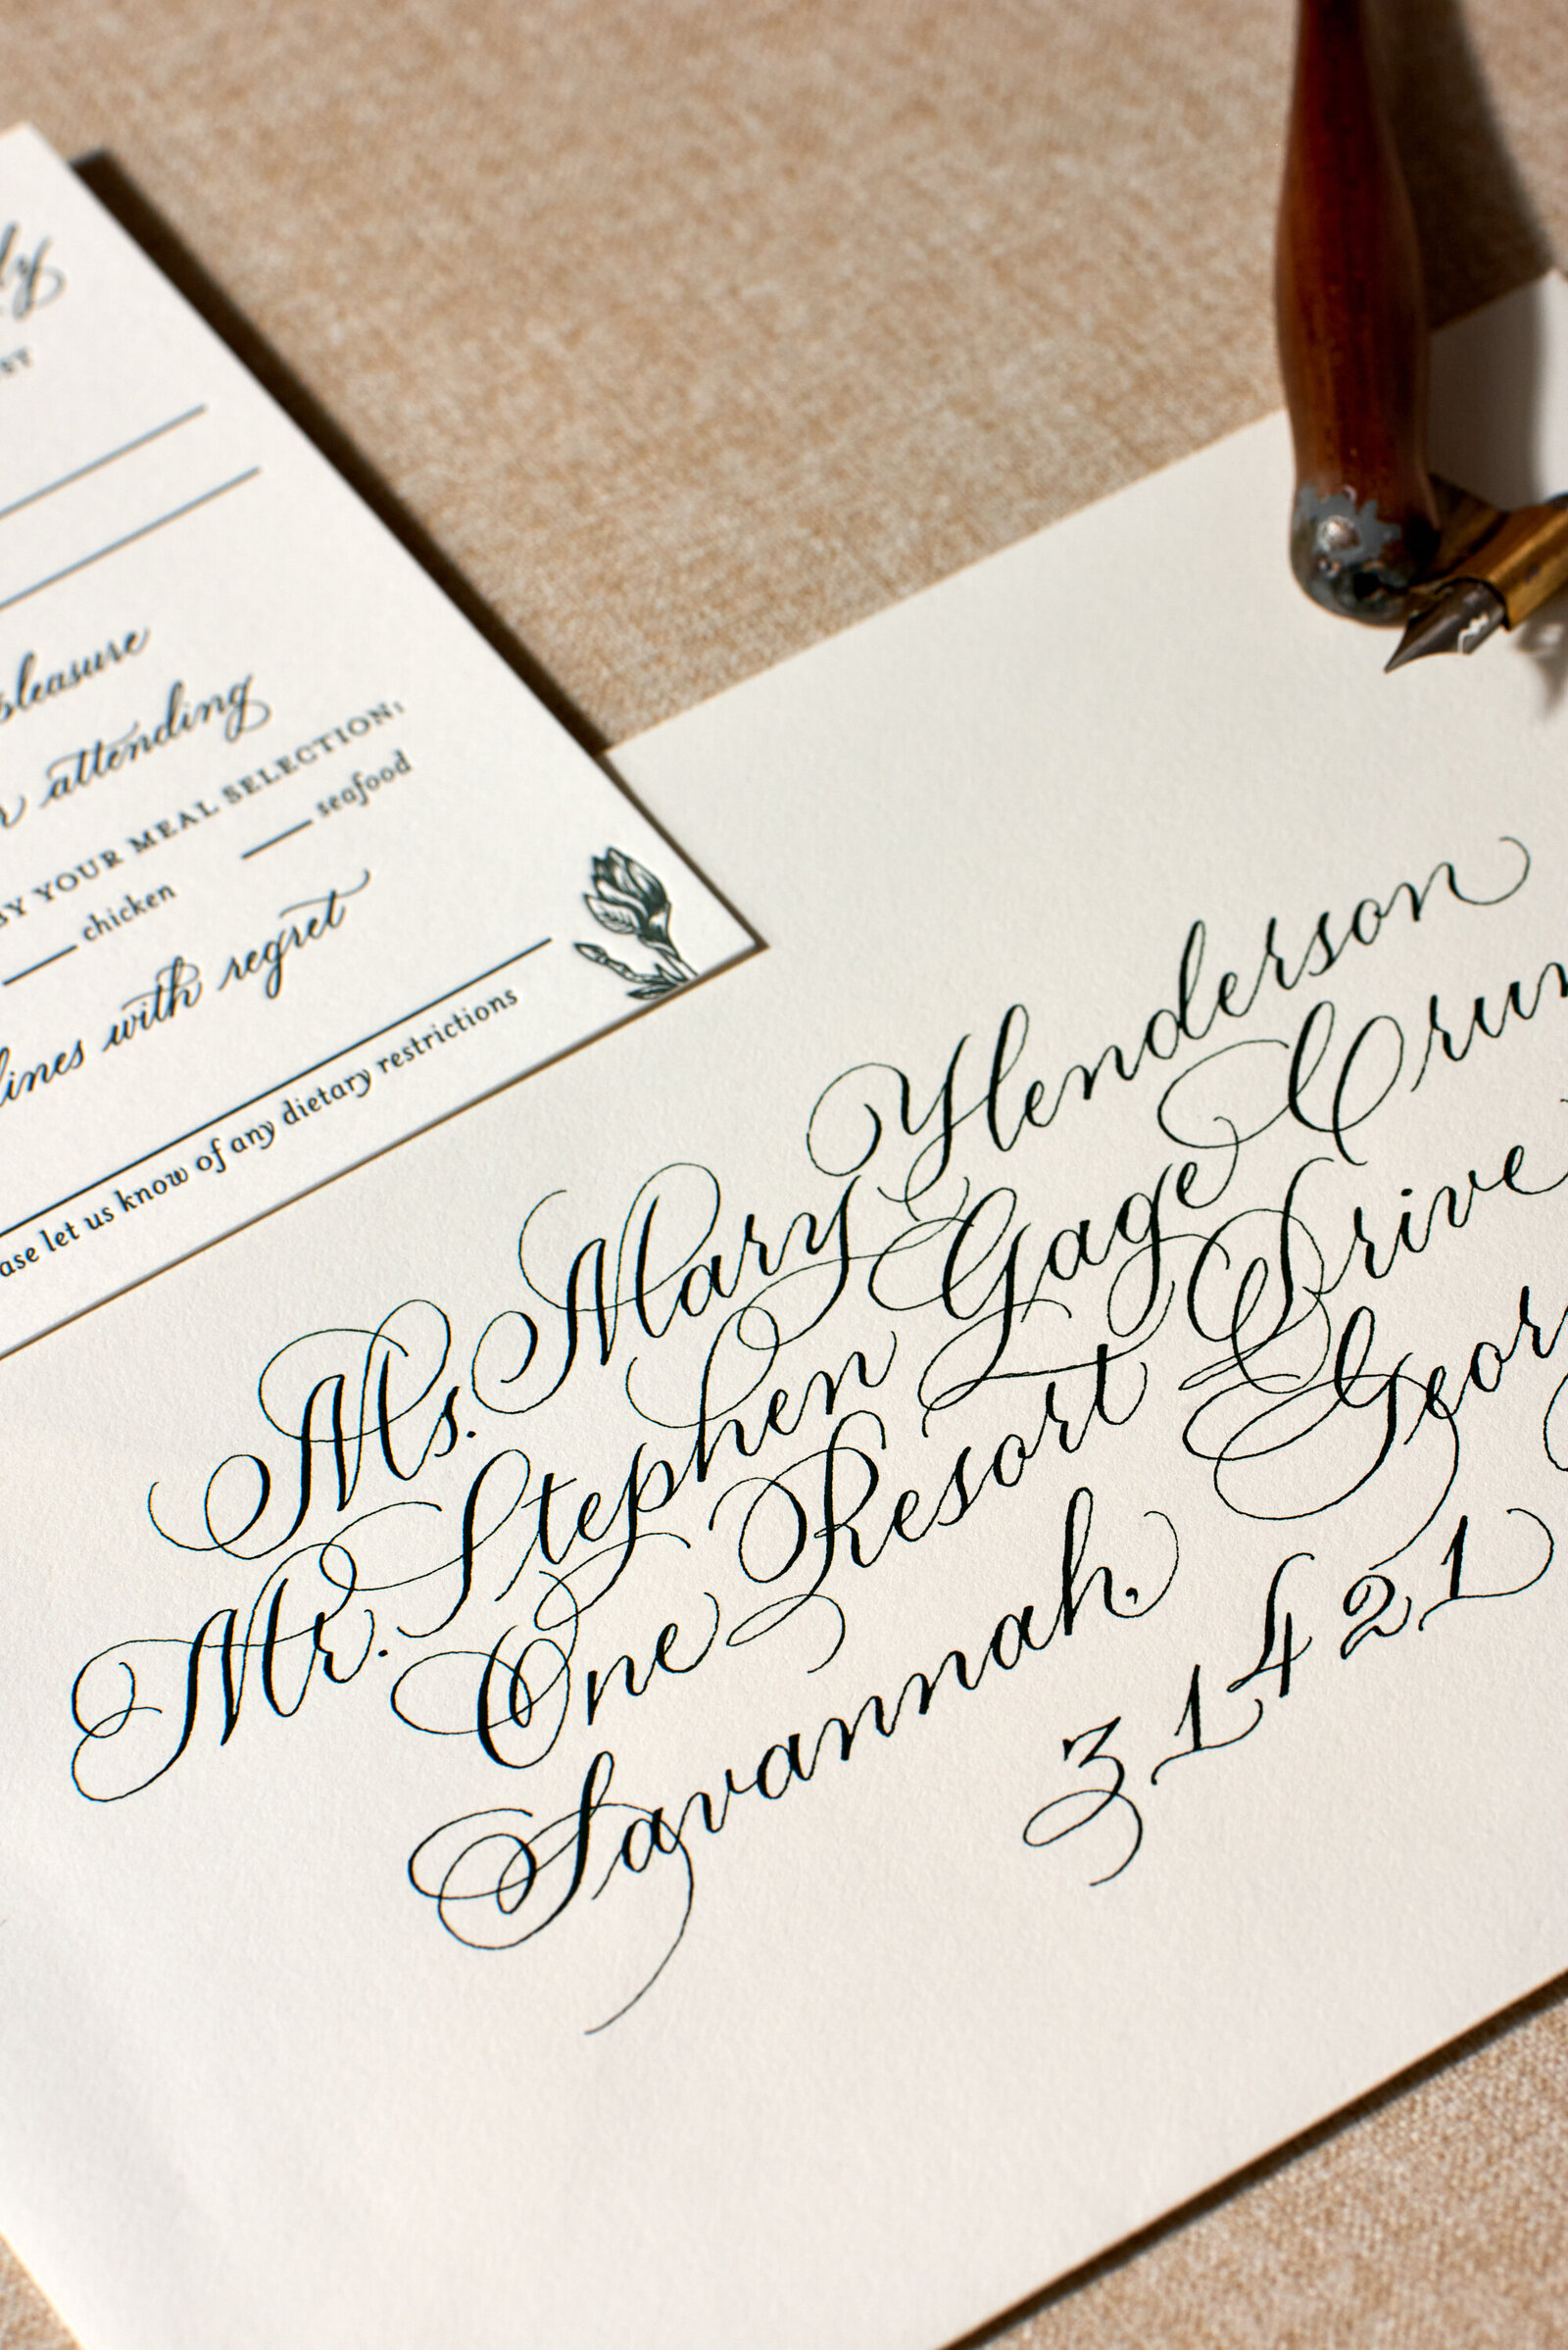 pleasure
attending
BY YOUR MEAL SELECTION:
chicken
seafood
with regret
let us know of any dietary restrictions
Ms. Mary Henderson
Mr. Stephen Gage Crum
One Resort Drive
Savannah, Geor
31421